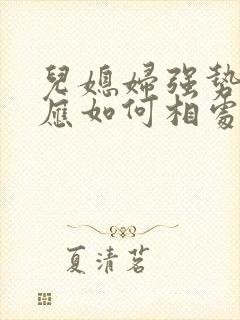 兒媳婦强勢
應如何相處
夏清茗